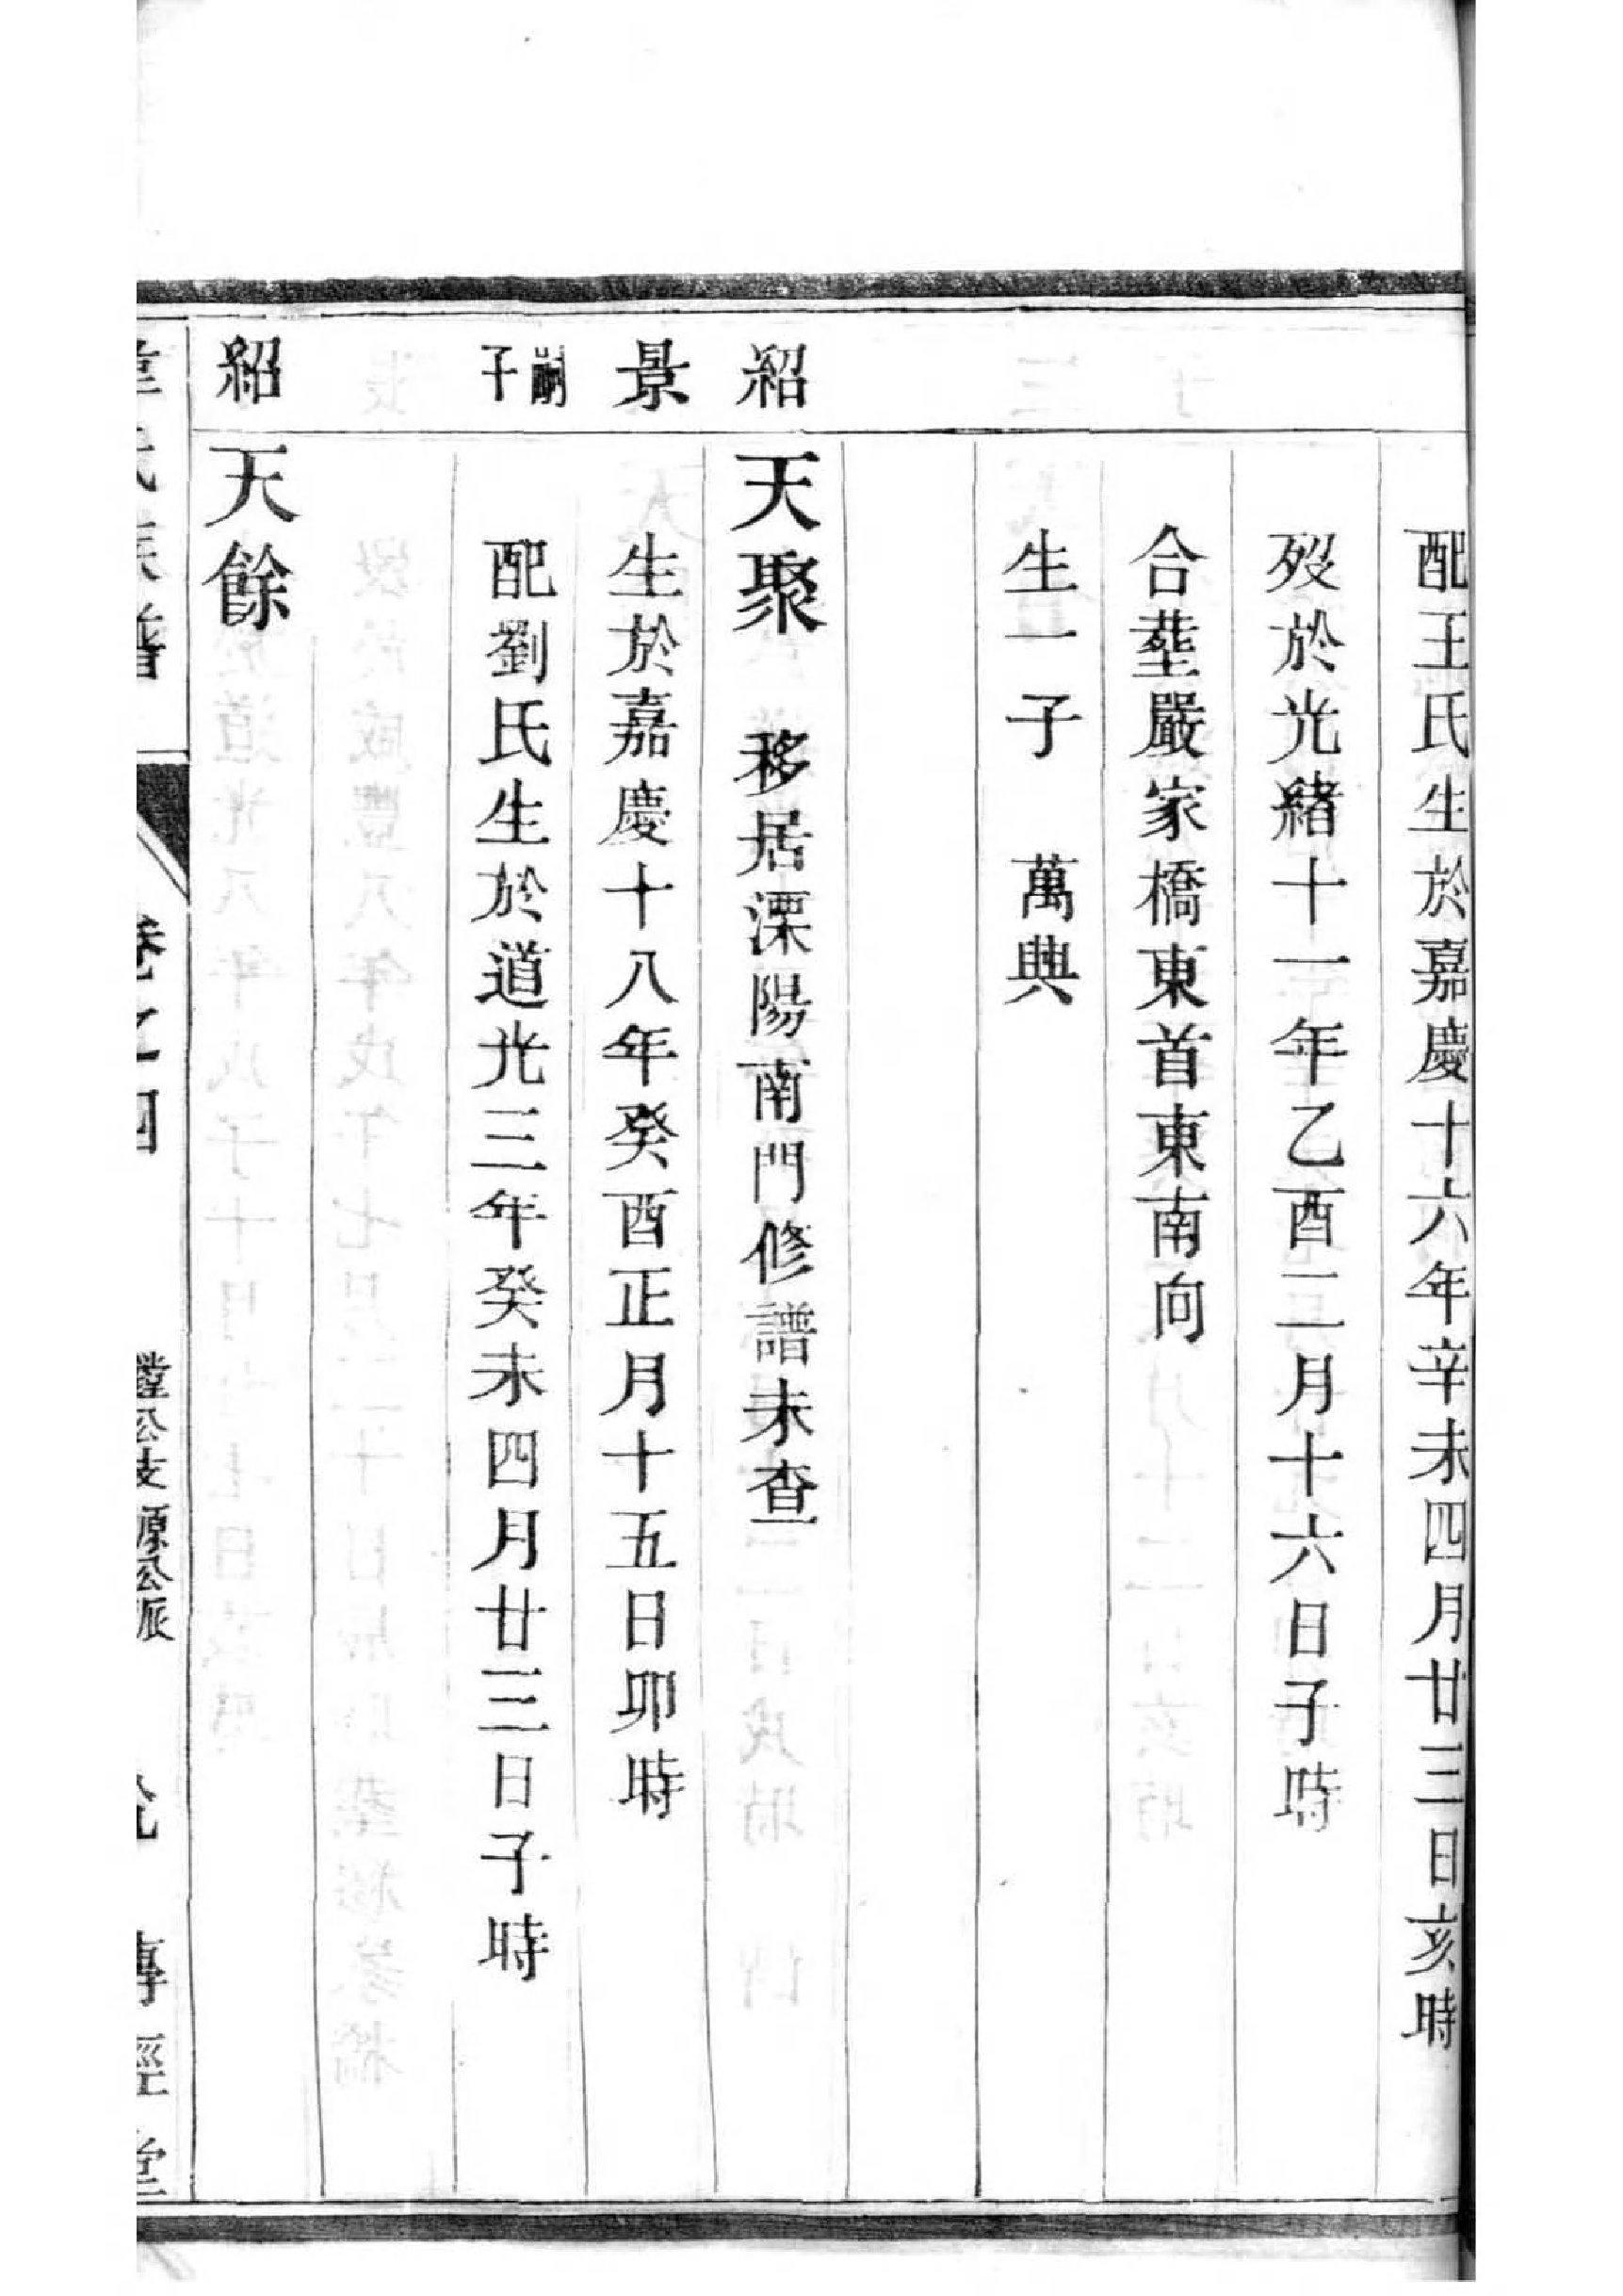 配王氏生於嘉慶十六年辛未四月廿三日亥時
歿於光緒十一年乙酉二月十六日子時
合塟嚴家橋東首東南向
生一子 萬興
紹 天聚 移居溧陽南門修譜未查
景 生於嘉慶十八年癸酉正月十五日卯時
嗣子 配劉氏生於道光三年癸未四月廿三日子時
紹 天餘
氏族譜 卷之四 公支源公派 傳經堂